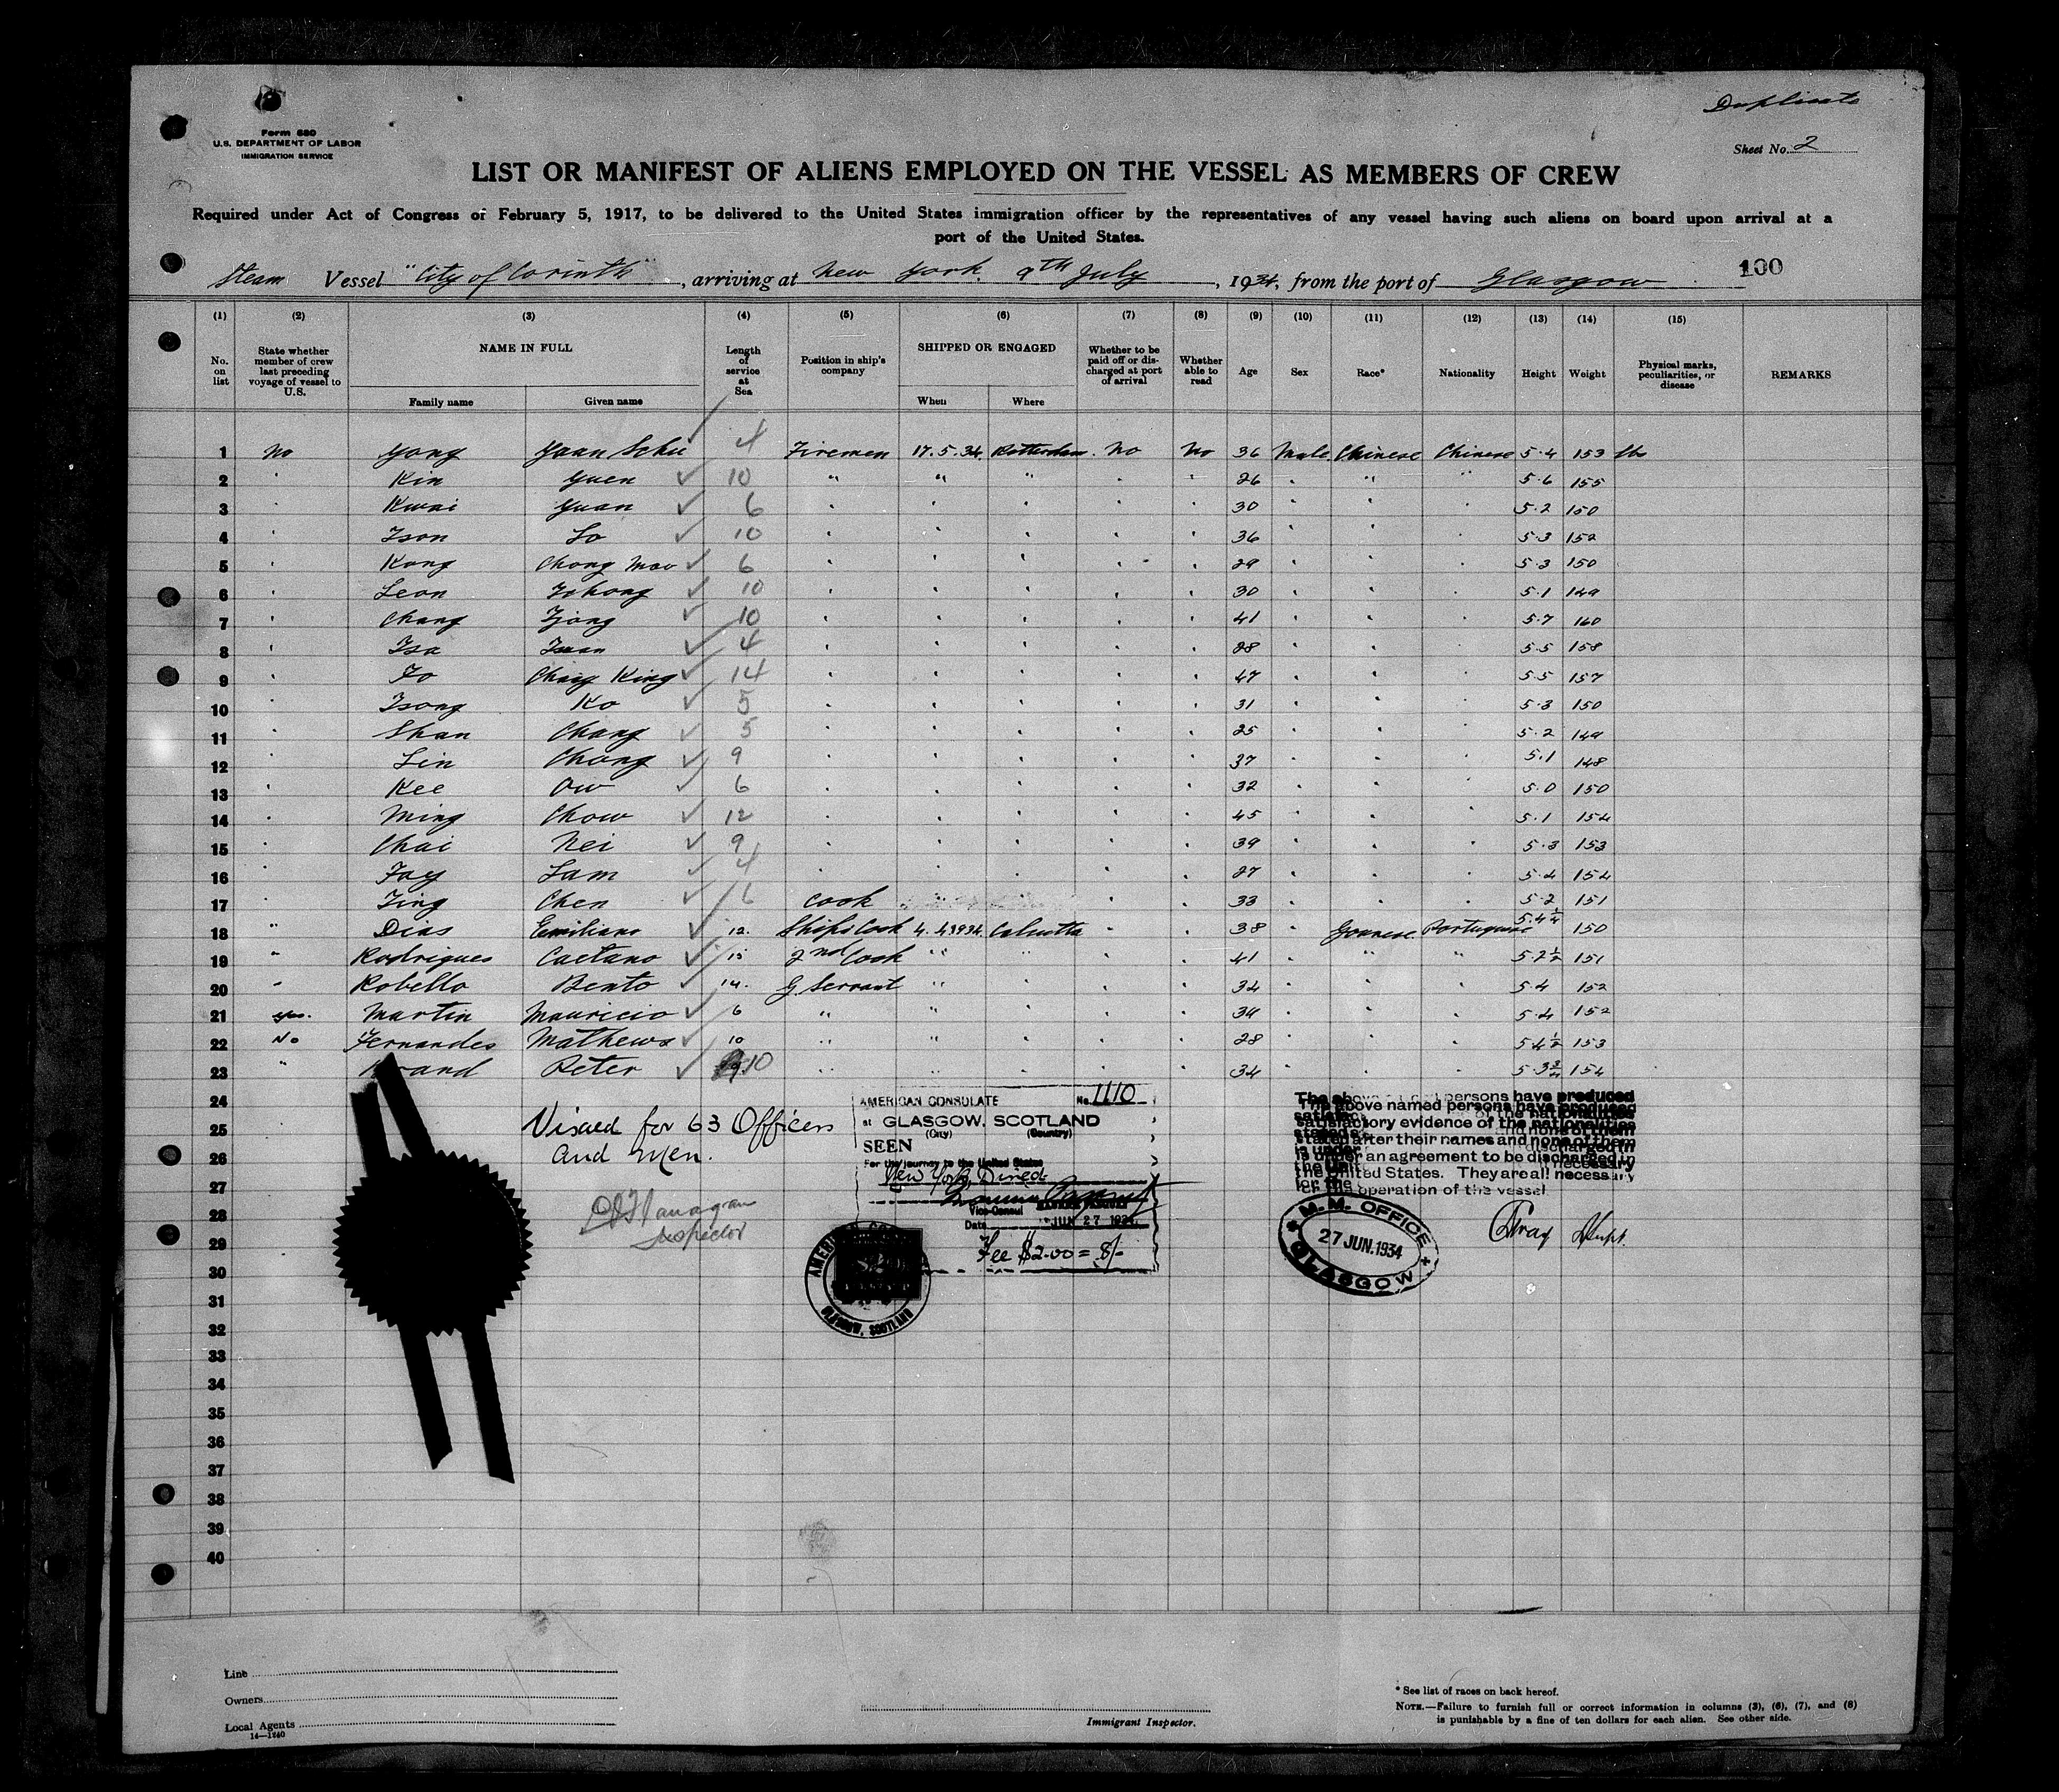 Duplicate
Form 680
U.S. DEPARTMENT OF LABOR
IMMIGRATION SERVICE
Sheet No. 2
LIST OR MANIFEST OF ALIENS EMPLOYED ON THE VESSEL AS MEMBERS OF CREW
Required under Act of Congress of February 5, 1917, to be delivered to the United States immigration officer by the representatives of any vessel having such aliens on board upon arrival at a
port of the United States.
Steam Vessel "City of Corinth", arriving at New York. 9th July, 1934, from the port of Glasgow
100
(1) (2) (3) (4) (5) (6) (7) (8) (9) (10) (11) (12) (13) (14) (15)
No. on list | State whether member of crew last preceding voyage of vessel to U.S. | NAME IN FULL | Length of service at Sea | Position in ship's company | SHIPPED OR ENGAGED | Whether to be paid off or discharged at port of arrival | Whether able to read | Age | Sex | Race* | Nationality | Height | Weight | Physical marks, peculiarities, or disease | REMARKS
Family name | Given name | When | Where
1 No Yong Yuan Schu 4 Firemen 17.5.34. Rotterdam. No No 36 Male Chinese Chinese 5.4 153 lbs
2 " Kin Yuen 10 " " " " " 26 " " " 5.6 155
3 " Kwai Yuan 6 " " " " " 30 " " " 5.2 150
4 " Tson So 10 " " " " " 36 " " " 5.3 152
5 " Kong Chong Mao 6 " " " " " 29 " " " 5.3 150
6 " Leon Zohong 10 " " " " " 30 " " " 5.1 149
7 " Chang Zjong 10 " " " " " 41 " " " 5.7 160
8 " Tsa 4 " " " " " 28 " " " 5.5 158
9 " Fo Chang King 14 " " " " " 47 " " " 5.5 157
10 " Tsong Ko 5 " " " " " 31 " " " 5.3 150
11 " Shan Chang 5 " " " " " 25 " " " 5.2 149
12 " Lin Chong 9 " " " " " 37 " " " 5.1 148
13 " Kee Ow 6 " " " " " 32 " " " 5.0 150
14 " Ming Chow 12 " " " " " 45 " " " 5.1 154
15 " Chai Nei 9 " " " " " 39 " " " 5.3 153
16 " Fay Lam 4 " " " " " 27 " " " 5.4 154
17 " Ting Chen 6 Cook " " " " 33 " " " 5.2 151
18 " Dias Emiliano 12. Ships Cook 4.4.3934. Calcutta " " 38 " Goanese Portuguese 5.4¼ 150
19 " Rodrigues Caetano 15 2nd Cook " " " " 41 " " " 5.2½ 151
20 " Robello Bento 14. G. Servant " " " " 34 " " " 5.4 152
21 yes. Martin Mauricio 6 " " " " " 34 " " " 5.4 152
22 No Fernandes Mathews 10 " " " " " 28 " " " 5 4½ 153
23 " Peter 10 " " " " " 34 " " " 5.3¾ 154
24
25
26
27
28
29
30
31
32
33
34
35
36
37
38
39
40
Visaed for 63 Officers
and Men.
Inspector
AMERICAN CONSULATE No. 1110
at GLASGOW, SCOTLAND
(City) (Country)
SEEN
For the journey to the United States
New York, Direct
Vice-Consul
Date JUN 27 1934
Fee $2.00 = 8/-
AMERICAN CONSULATE
GLASGOW, SCOTLAND
The above named persons have produced
satisfactory evidence of the nationalities
stated after their names and none of them
is under an agreement to be discharged in
the United States. They are all necessary
for the operation of the vessel
M. M. OFFICE
27 JUN. 1934
GLASGOW
Supt.
Line
Owners
Local Agents
14—1240
Immigrant Inspector.
* See list of races on back hereof.
NOTE.—Failure to furnish full or correct information in columns (3), (6), (7), and (8)
is punishable by a fine of ten dollars for each alien. See other side.